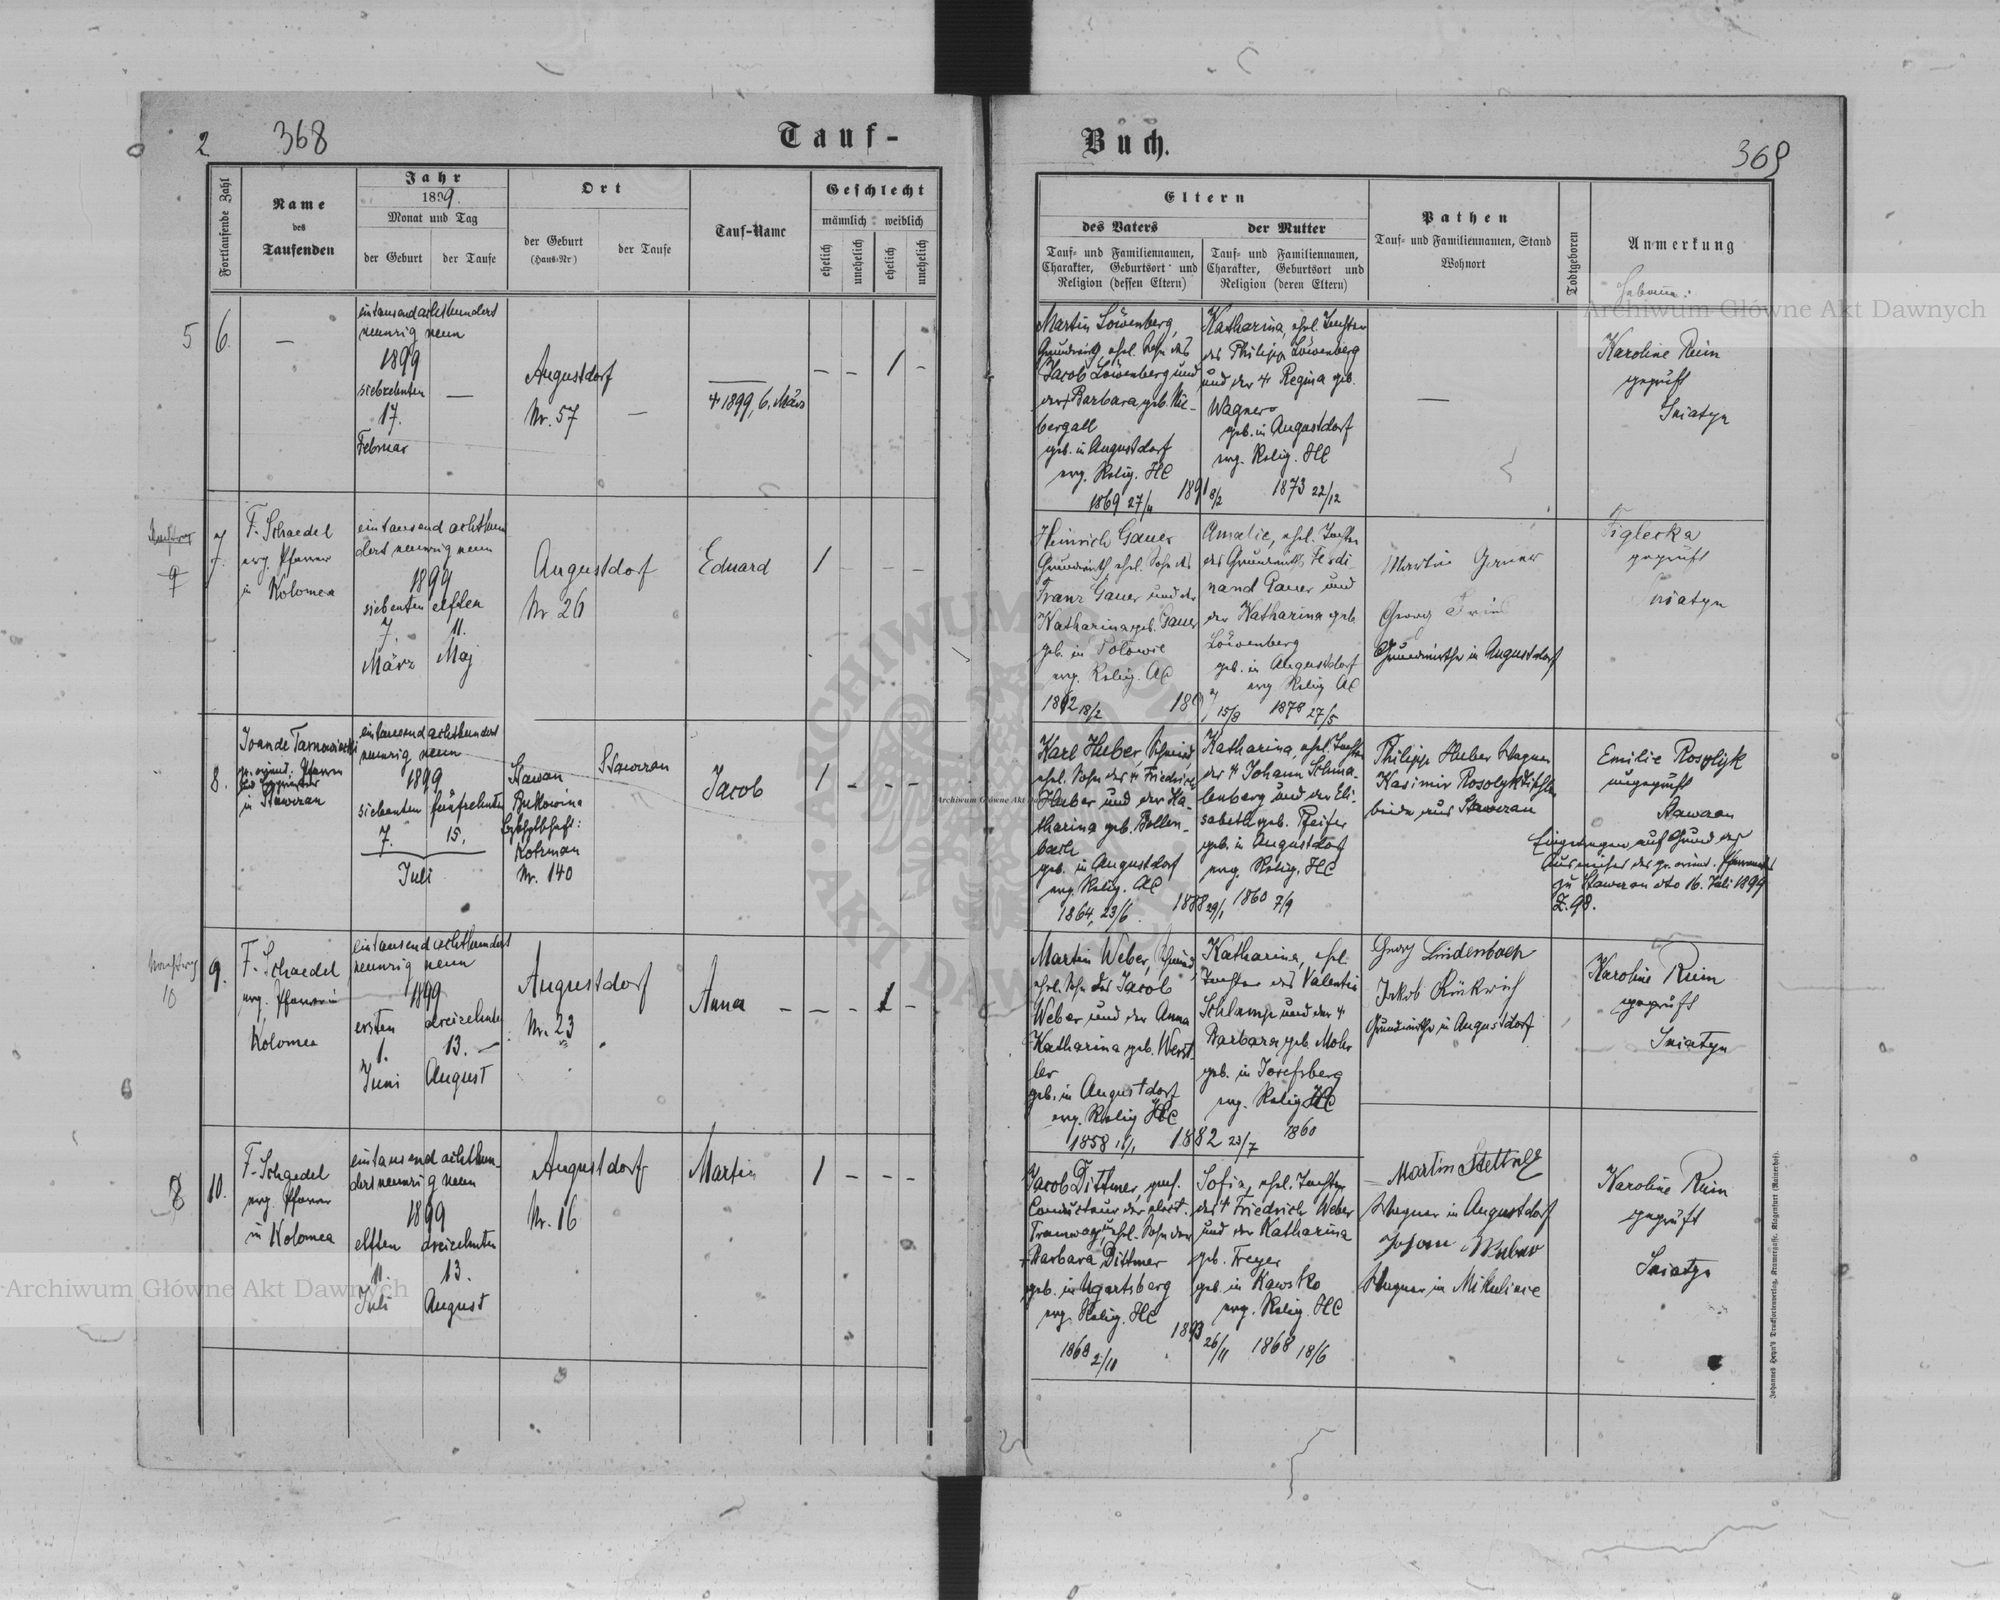 2 368
Tauf-
Buch.
369
Fortlaufende Zahl
Name
des
Taufenden
Jahr
1899.
Monat und Tag
der Geburt
der Taufe
Ort
der Geburt
(Haus-Nr)
der Taufe
Tauf-Name
Geschlecht
männlich
weiblich
ehelich
unehelich
ehelich
unehelich
Eltern
des Vaters
Tauf- und Familiennamen,
Charakter, Geburtsort und
Religion (dessen Eltern)
der Mutter
Tauf- und Familiennamen,
Charakter, Geburtsort und
Religion (deren Eltern)
Pathen
Tauf- und Familiennamen, Stand
Wohnort
Todtgeboren
Anmerkung
5
6.
—
eintausendachthundert
neunzig neun
1899
siebzehnten
17.
Februar
—
Augustdorf
Nr. 57
—
† 1899, 6. März
— — 1 —
Martin Löwenberg,
Grundwirth, ehel. Sohn des
Jacob Löwenberg und
der † Barbara, geb. Nie-
bergall
geb. in Augustdorf
evg. Relig. HC
1869 27/4
1891 8/2
Katharina, ehel. Tochter
des Philipp Löwenberg
und der † Regina geb.
Wagner
geb. in Augustdorf
evg. Relig. HC
1873 22/12
—
Karoline Rein
geprüft
Sniatyn
9
7.
F. Schaedel
evg. Pfarrer
in Kolomea
eintausend achthun
dert neunzig neun
1899
siebenten elften
7. 11.
März Maj
Augustdorf
Nr 26
Eduard
1 — — —
Heinrich Gauer
Grundwirth, ehel. Sohn des
Franz Gauer und der
Katharina geb. Gauer
geb. in Polowce
evg. Relig. AC
18/2
15/8
Amalie, ehel. Tochter
des Grundwirths Ferdi
nand Gauer und
der Katharina geb.
Löwenberg
geb. in Augustdorf
evg Relig AC
1878 27/5
Martin Gauer
Georg
Grundwirthe in Augustdorf
Figlerka
geprüft
Sniatyn
8.
Joande Tarnowiecki
gr. orient. Pfarrer
in Stawczan
eintausend achthundert
neunzig neun
1899
siebenten fünfzehnten
7. 15.
Juli
Stawczan
Bukowina
Kotzman
Nr. 140
Stawczan
Jacob
1 — — —
Karl Huber, Schmied,
ehel. Sohn des † Friedrich
Huber und der Ka-
tharina geb. Bollen-
bach
geb. in Augustdorf
evg. Relig. AC
1864, 23/6
1888 29/1
Katharina, ehel. Tochter
des † Johann Schma-
lenberg und der Eli-
sabeth geb. Pfeifer
geb. in Augustdorf
evg. Relig. HC
1860 7/9
Philipp Huber Wagner
Kasimir Rosolyk Tischler
beide aus Stawczan
Emilie Rosolyk
ungeprüft
Stawczan
Eingetragen auf Grund des
Ausweises des gr. orient. Pfarramtes
zu Stawczan dto 16. Juli 1899
Z. 98.
10
9.
F. Schaedel
evg. Pfarrer in
Kolomea
eintausendachthundert
neunzig neun
1899
ersten dreizehnten
1. 13.
Juni August
Augustdorf
Nr. 23
Anna
— — 1 —
Martin Weber, Schmied
ehel. Sohn des Jacob
Weber und der Anna
Katharina geb. Werst
ler
geb. in Augustdorf
evg. Relig HC
1858
1882 23/7
Katharina, ehel.
Tochter des Valentin
Schlamp und der †
Barbara geb. Mohr
geb. in Josefsberg
evg. Relig HC
1860
Georg Lindenbach
Jakob Rükwich
Grundwirthe in Augustdorf
Karoline Rein
geprüft
Sniatyn
8
10.
F. Schaedel
evg. Pfarrer
in Kolomea
eintausend achthun-
dert neunzig neun
1899
elften dreizehnten
11. 13.
Juli August
Augustdorf
Nr. 16
Martin
1 — — —
Jacob Dittmer, gew.
Conducteur der elect.
Tramway, ehel. Sohn der
† Barbara Dittmer
geb. in Ugartsberg
evg. Relig. HC
1868 2/11
1893 26/11
Sofia, ehel. Tochter
des † Friedrich Weber
und der Katharina
geb. Freyer
geb. in Kawsko
evg. Relig. HC
1868 18/6
Martin
Wagner in Augustdorf
Johann
Wagner in Mikulince
Karoline Rein
geprüft
Sniatyn
Archiwum Główne Akt Dawnych
Archiwum Główne Akt Dawnych
Archiwum Główne Akt Dawnych